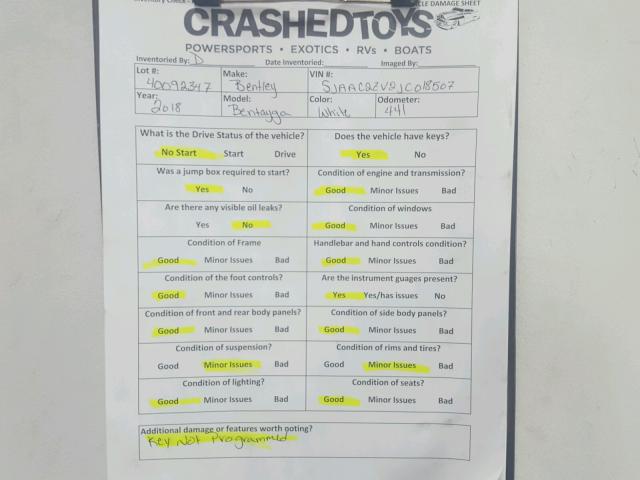 CLE DAMAGE SHEET
CRASHEDTOYS
POWERSPORTS • EXOTICS • RVs • BOATS
Inventoried By: D Date Inventoried: Imaged By:
Lot #: Make: VIN #:
40092347 Bentley SJAAC2ZV2JC018507
Year: Model: Color: Odometer:
2018 Bentayga White 441
What is the Drive Status of the vehicle? Does the vehicle have keys?
No Start Start Drive Yes No
Was a jump box required to start? Condition of engine and transmission?
Yes No Good Minor Issues Bad
Are there any visible oil leaks? Condition of windows
Yes No Good Minor Issues Bad
Condition of Frame Handlebar and hand controls condition?
Good Minor Issues Bad Good Minor Issues Bad
Condition of the foot controls? Are the instrument guages present?
Good Minor Issues Bad Yes Yes/has issues No
Condition of front and rear body panels? Condition of side body panels?
Good Minor Issues Bad Good Minor Issues Bad
Condition of suspension? Condition of rims and tires?
Good Minor Issues Bad Good Minor Issues Bad
Condition of lighting? Condition of seats?
Good Minor Issues Bad Good Minor Issues Bad
Additional damage or features worth noting?
Key Not Programmed